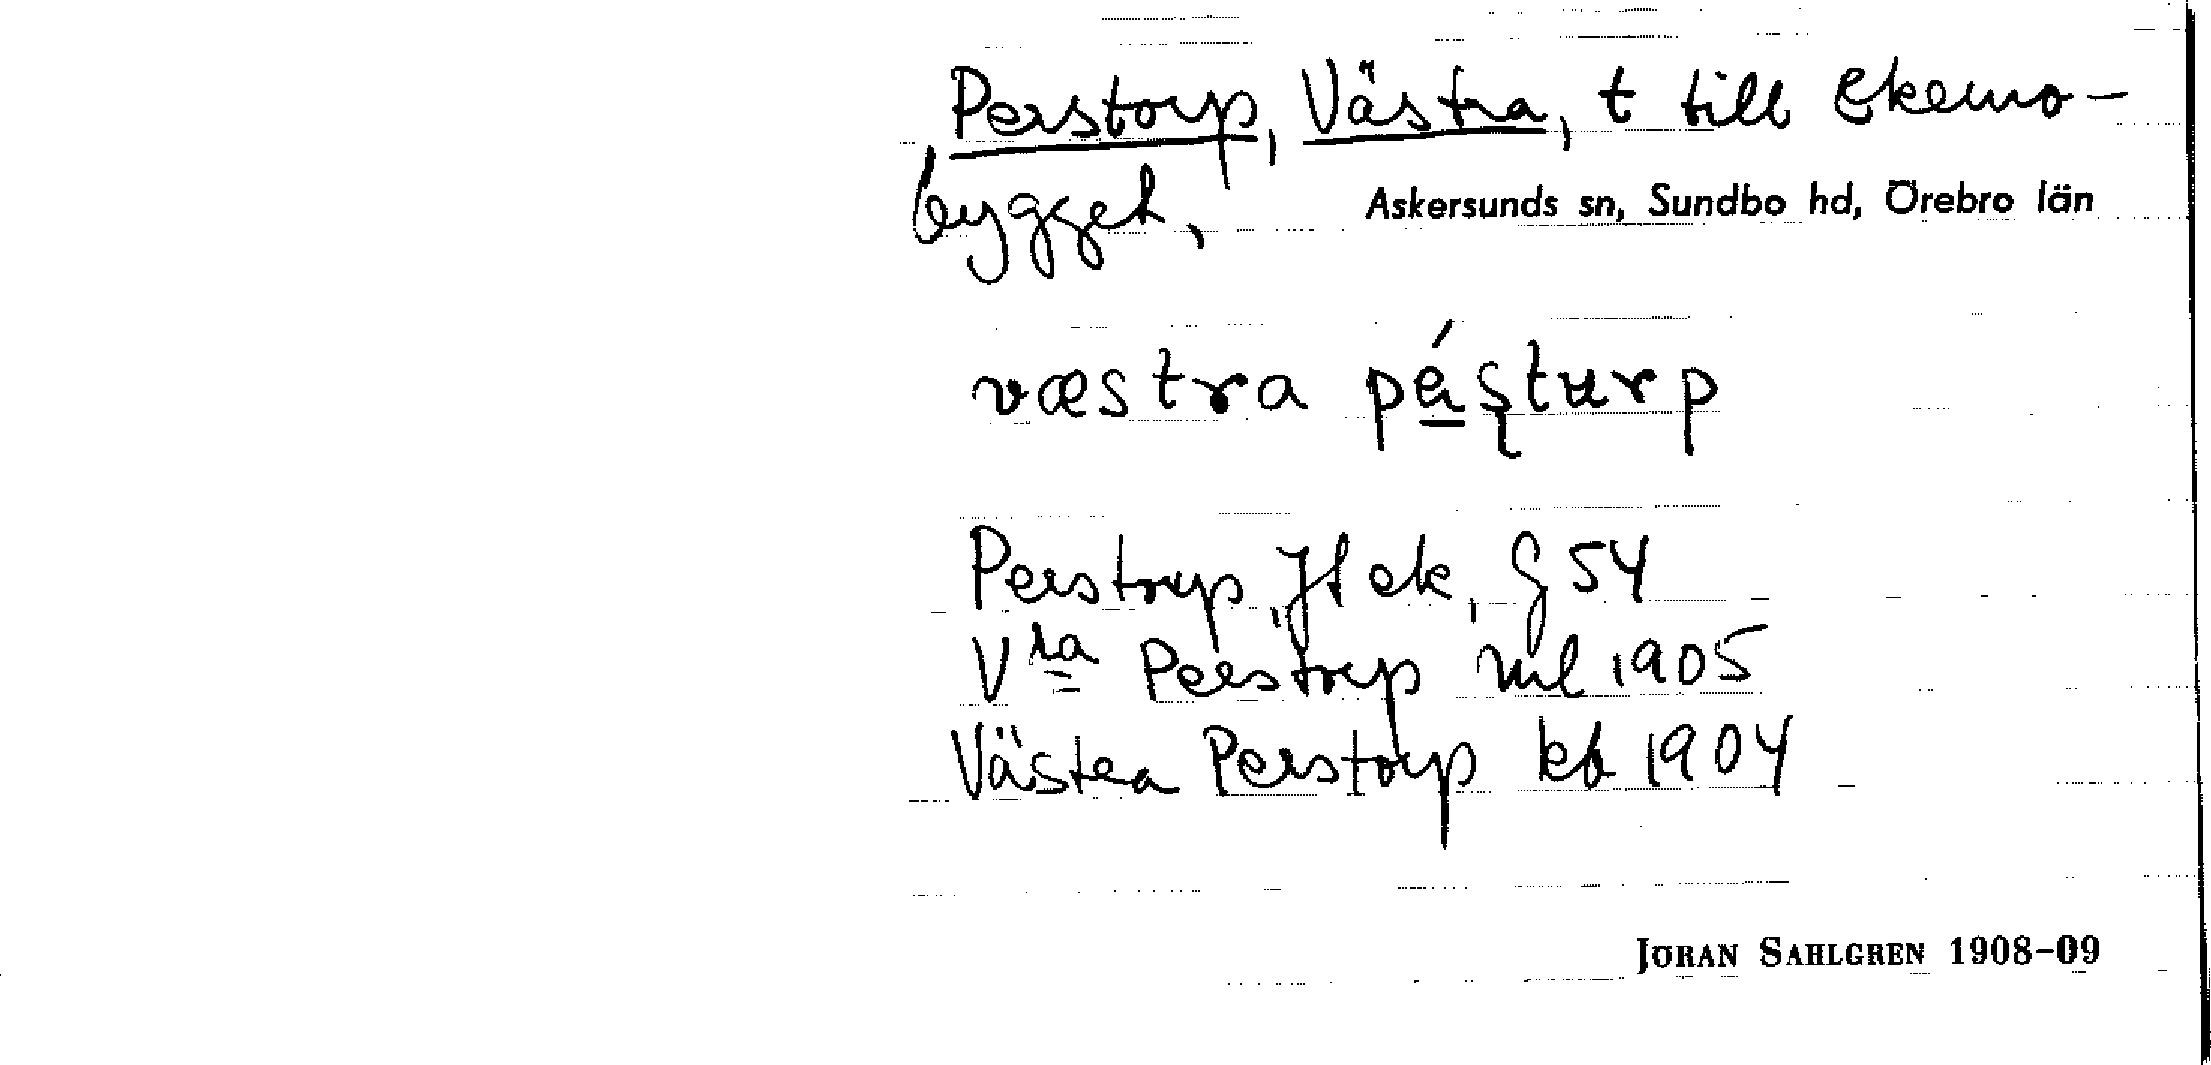 Perstorp, Västra, t till Ekemo-
bygget,
Askersunds sn, Sundbo hd, Örebro län
væstra pá̱s̨turp
Perstorp, Jfl ek, G 54
Vra Perstorp ml 1905
Västra Perstorp kb 1904
JÖRAN SAHLGREN 1908-09